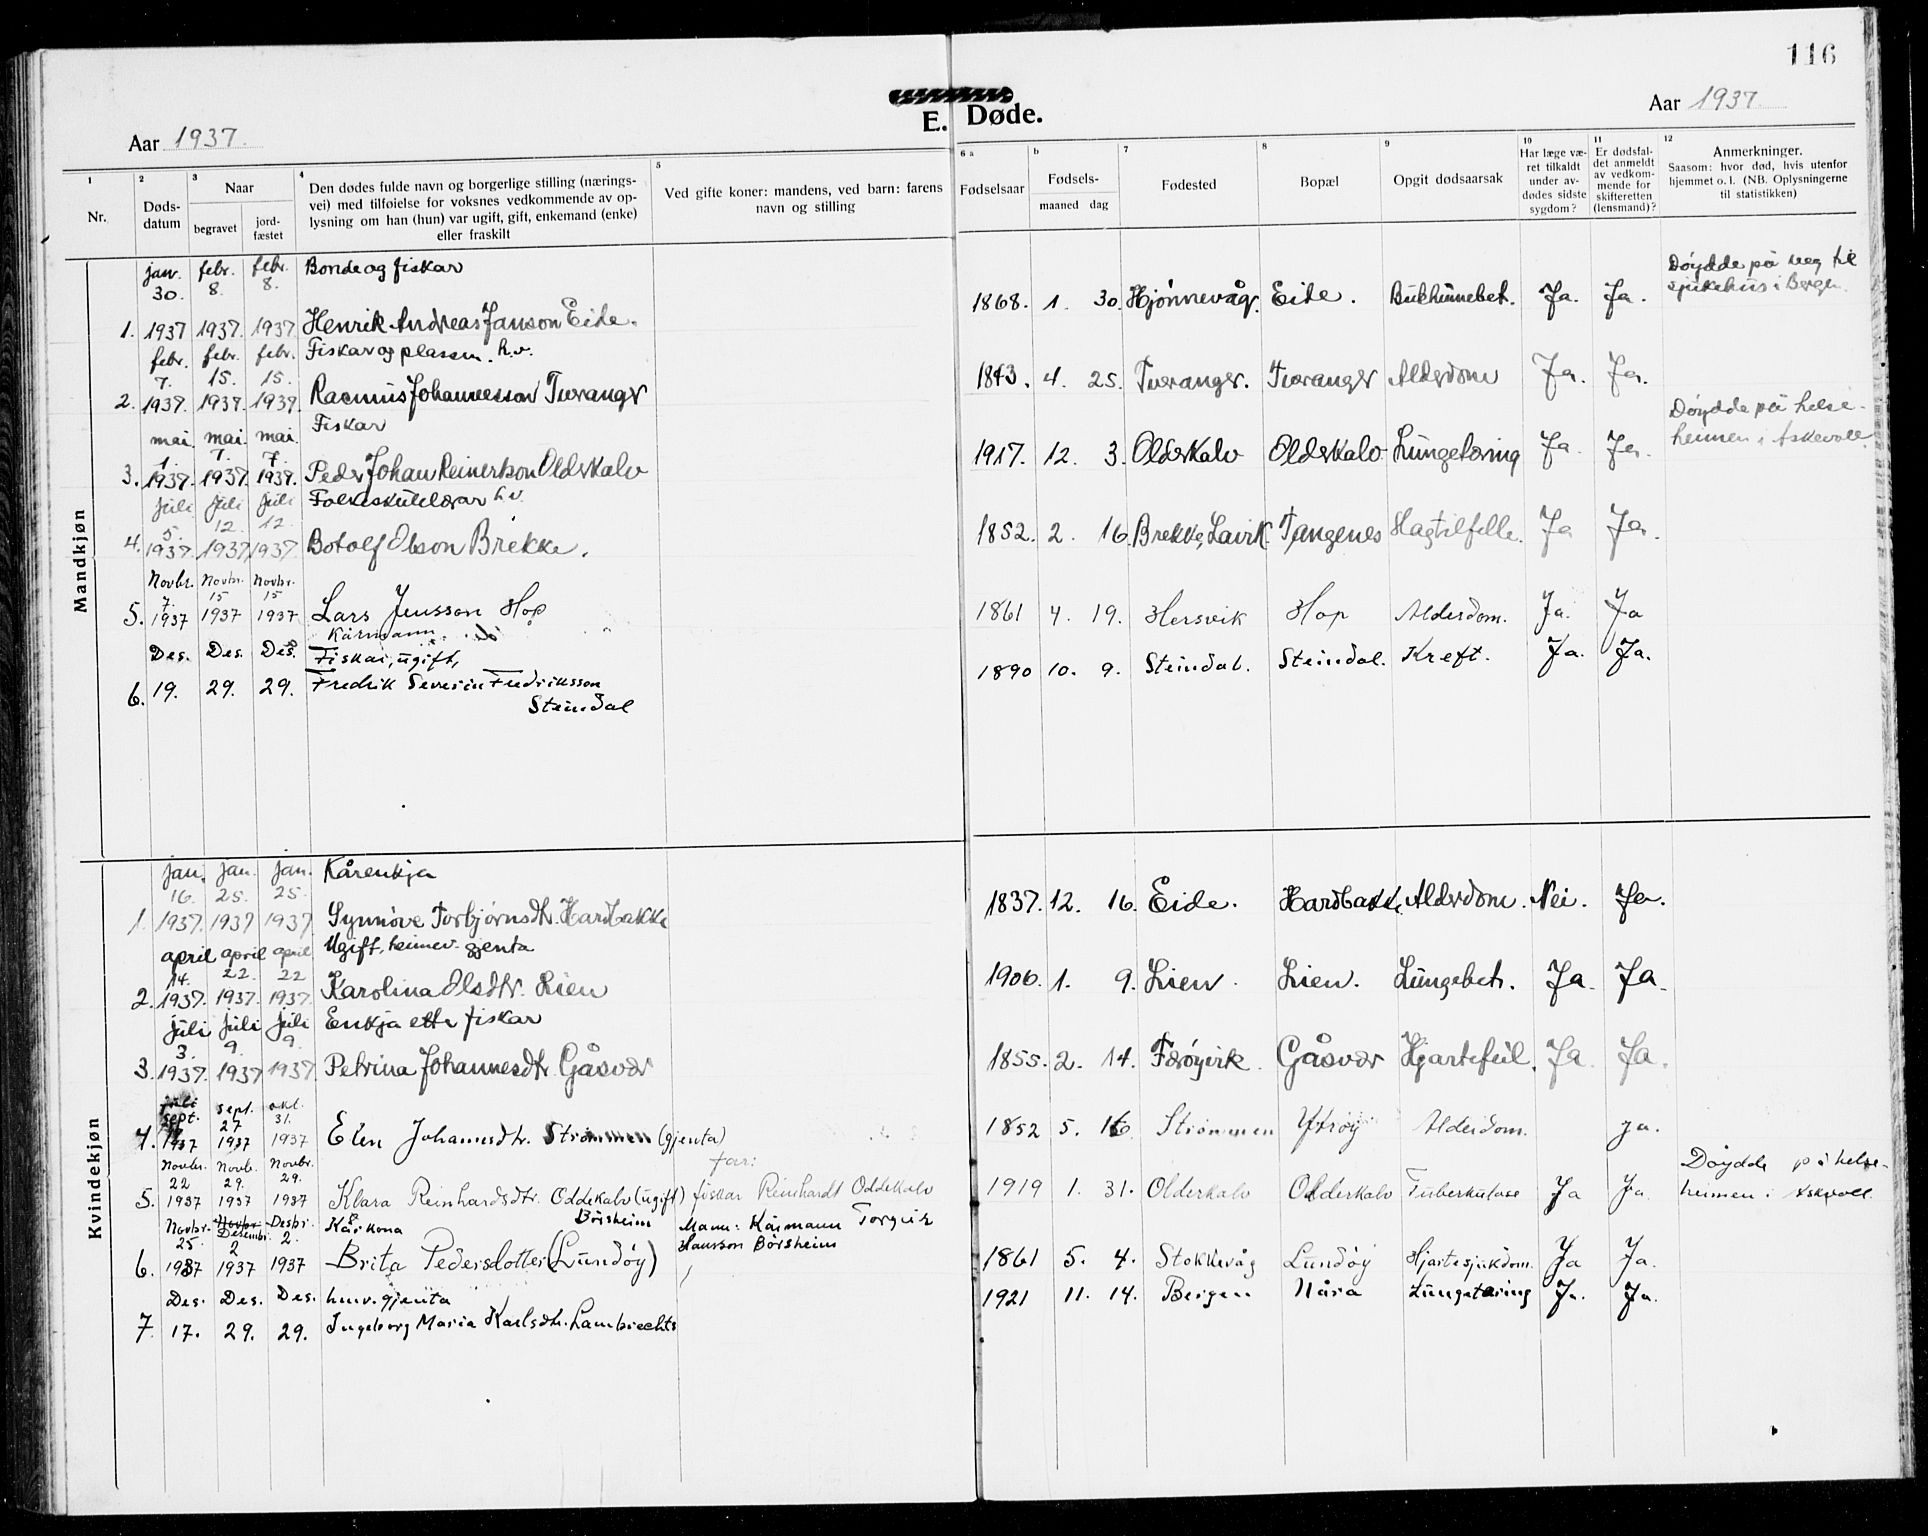 116
E. Døde.
Aar 1937.
Aar 1937.
1 Nr.
2 Døds-datum
3 Naar
begravet
jord-fæstet
4 Den dødes fulde navn og borgerlige stilling (nærings-
vei) med tilføielse for voksnes vedkommende av op-
lysning om han (hun) var ugift, gift, enkemand (enke)
eller fraskilt
5 Ved gifte koner: mandens, ved barn: farens
navn og stilling
6 a Fødselsaar
b Fødsels-
maaned dag
7 Fødested
8 Bopæl
9 Opgit dødsaarsak
10 Har læge væ-
ret tilkaldt
under av-
dødes sidste
sygdom?
11 Er dødsfal-
det anmeldt
av vedkom-
mende for
skifteretten
(lensmand)?
12 Anmerkninger.
Saasom: hvor død, hvis utenfor
hjemmet o. l. (NB. Oplysningerne
til statistikken)
Mandkjøn
jan. febr. febr. Bonde og fiskar
30. 8. 8. Døydde på veg til
1868. 1. 30. Hjønnevåg. Eide. Bukhinnebet. Ja. Ja. sjukehus i Bergen.
1. 1937 1937. 1937 Henrik Andreas Janson Eide.
febr. febr. febr. Fiskar og plassm. h.v.
7. 15. 15.
1843. 4. 25. Tveranger. Tveranger Alderdom Ja. Ja.
2. 1937. 1937. 1937. Rasmus Johannesson Tveranger
mai. mai. mai. Fiskar
1. 7. 7. Døydde på helse-
1917. 12. 3. Olderkalv Olderkalv Lungetæring Ja. Ja. heimen i Askvoll
3. 1937. 1937. 1937. Peder Johan Reinertson Olderkalv
juli juli juli Folkeskulelærar h.v.
5. 12. 12.
1852. 2. 16. Brekke, Lavik. Tangenes Slagtilfelle. Ja Ja.
4. 1937. 1937. 1937. Botolf Olson Brekke.
Novbr. Novbr. Novbr.
7. 15 15
1861 4. 19. Hersvik Hop Alderdom. Ja. Ja
5. 1937 1937 1937 Lars Jensson Hop
Kårmann.
Des. Des. Des. Fiskar, ugift,
1890 10. 9. Steindal. Steindal. Kreft. Ja. Ja.
6. 19. 29. 29. Fredrik Severin Fredriksson
Steindal
Kvindekjøn
jan. jan. jan. Kårenkja
16. 25. 25.
1837. 12. 16. Eide. Hardbakke. Alderdom. Nei. Ja.
1. 1937. 1937 1937 Synnøve Torbjørnsdtr. Hardbakke
april april april Ugift, heimev. gjenta
14. 22. 22
1906. 1. 9. Lien. Lien. Lungebet. Ja. Ja.
2. 1937. 1937. 1937. Karolina Olsdtr. Lien
juli juli juli Enkja etter fiskar
3. 9. 9.
1855. 2. 14. Færøyvik. Gåsvær Hjartefeil. Ja. Ja.
3. 1937. 1937 1937 Petrina Johannesdtr. Gåsvær
sept. sept. okt.
27 31.
1852 5. 16 Strømmen Ytrøy Alderdom. Ja.
4. 1937 1937 1937 Elen Johannesdtr. Strømmen (gjenta)
Novbr. Novb. Novbr. Far:
22 29. 29. Døydde på helse-
1919 1. 31. Olderkalv Olderkalv Tuberkulose Ja Ja. heimen i Askvoll.
5. 1937 1937 1937 Klara Reinhardsdtr. Oddekalv (ugift) fiskar Reinhardt Oddekalv
Novbr. Novbr. Desbr. Kårkona Børsheim Mann: Kårmann Torgeir
25. Desembr. 2 2. Hansson Børsheim
1861 5. 4. Stokkevåg Lundøy Hjartesjukdom. Ja Ja.
6. 1937 1937 1937 Brita Pedersdotter (Lundøy)
Des. Des. Des. hmv. gjenta
1921 11. 14. Bergen Nåra Lungetæring Ja. Ja.
7. 17. 29. 29. Ingeborg Maria Karlsdtr. Lambrechts